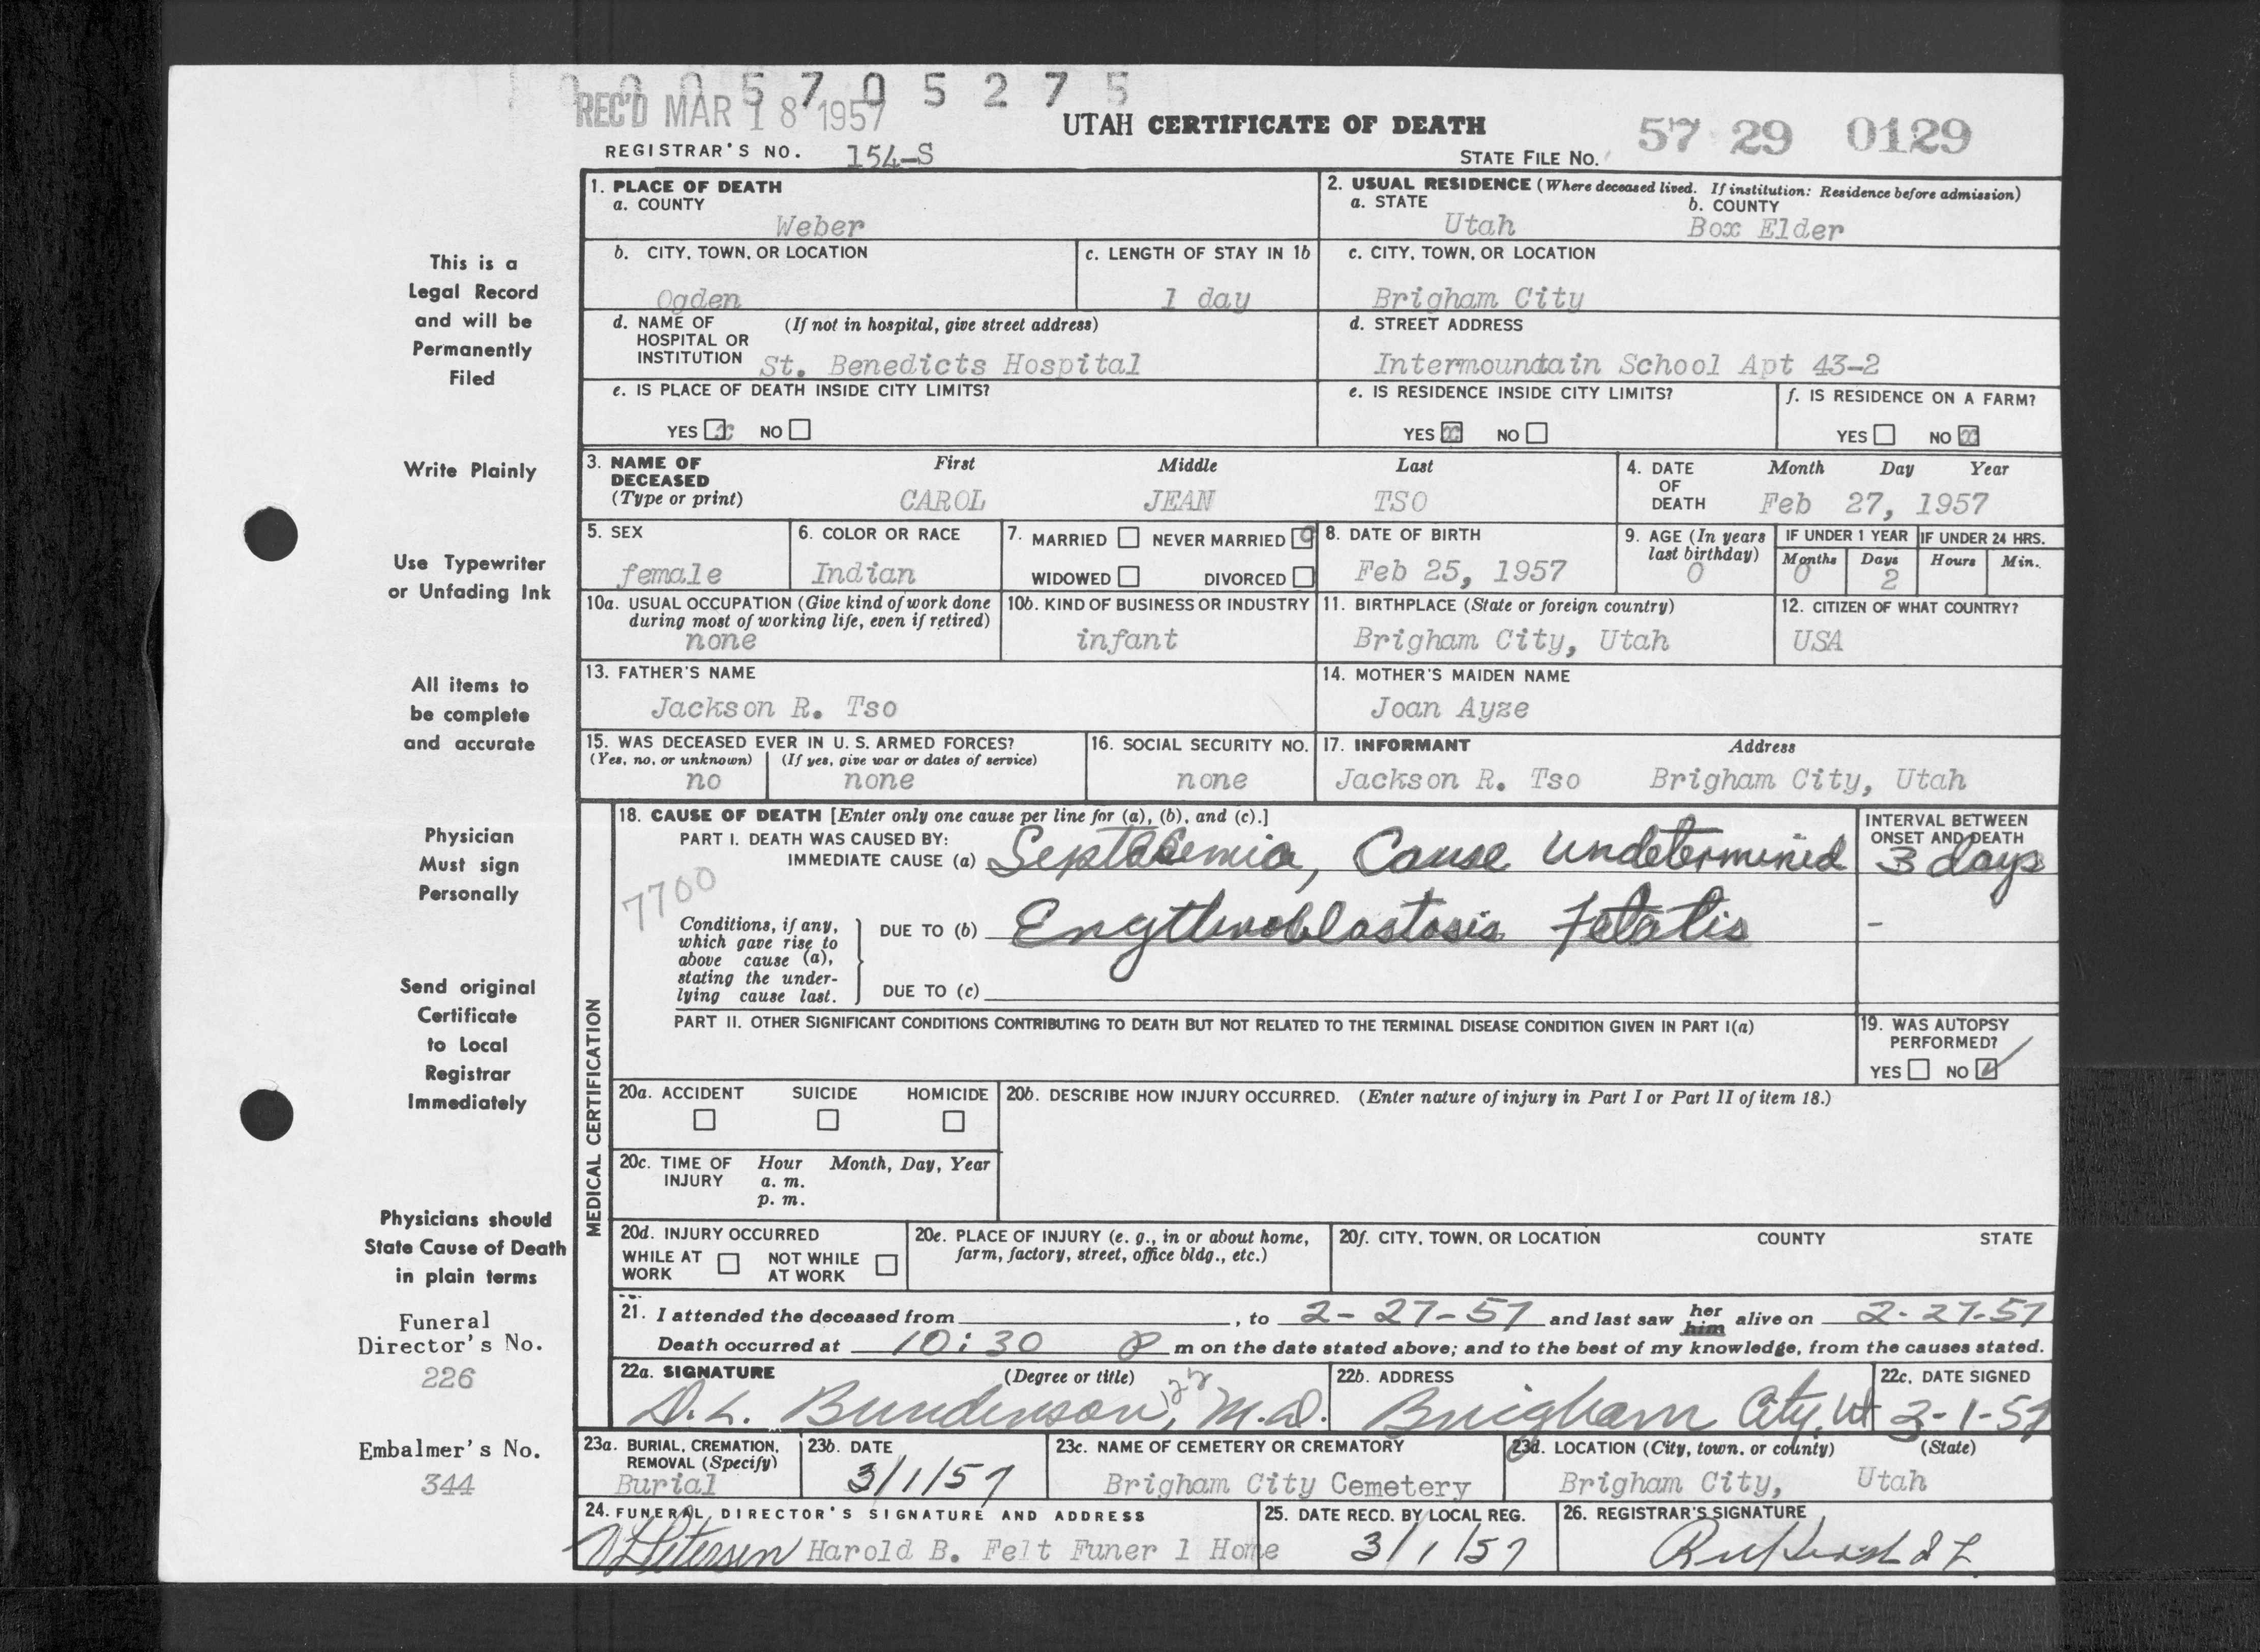 0 0 0 5 7 0 5 2 7 5
REC'D MAR 18 1957
UTAH CERTIFICATE OF DEATH
57 29 0129
REGISTRAR'S NO. 154-S
STATE FILE NO.
1. PLACE OF DEATH
a. COUNTY
Weber
2. USUAL RESIDENCE (Where deceased lived. If institution: Residence before admission)
a. STATE b. COUNTY
Utah Box Elder
b. CITY, TOWN, OR LOCATION
Ogden
c. LENGTH OF STAY IN 1b
1 day
c. CITY, TOWN, OR LOCATION
Brigham City
d. NAME OF (If not in hospital, give street address)
HOSPITAL OR
INSTITUTION St. Benedicts Hospital
d. STREET ADDRESS
Intermoundain School Apt 43-2
e. IS PLACE OF DEATH INSIDE CITY LIMITS?
YES x NO
e. IS RESIDENCE INSIDE CITY LIMITS?
YES x NO
f. IS RESIDENCE ON A FARM?
YES NO x
3. NAME OF DECEASED (Type or print)
First Middle Last
CAROL JEAN TSO
4. DATE OF DEATH
Month Day Year
Feb 27, 1957
5. SEX
female
6. COLOR OR RACE
Indian
7. MARRIED NEVER MARRIED
WIDOWED DIVORCED
8. DATE OF BIRTH
Feb 25, 1957
9. AGE (In years
last birthday)
0
IF UNDER 1 YEAR IF UNDER 24 HRS.
Months Days Hours Min.
0 2
10a. USUAL OCCUPATION (Give kind of work done
during most of working life, even if retired)
none
10b. KIND OF BUSINESS OR INDUSTRY
infant
11. BIRTHPLACE (State or foreign country)
Brigham City, Utah
12. CITIZEN OF WHAT COUNTRY?
USA
13. FATHER'S NAME
Jackson R. Tso
14. MOTHER'S MAIDEN NAME
Joan Ayze
15. WAS DECEASED EVER IN U. S. ARMED FORCES?
(Yes, no, or unknown) (If yes, give war or dates of service)
no none
16. SOCIAL SECURITY NO.
none
17. INFORMANT Address
Jackson R. Tso Brigham City, Utah
MEDICAL CERTIFICATION
18. CAUSE OF DEATH [Enter only one cause per line for (a), (b), and (c).]
PART I. DEATH WAS CAUSED BY:
IMMEDIATE CAUSE (a) Septacemia, Cause undetermined
INTERVAL BETWEEN
ONSET AND DEATH
3 days
7700
Conditions, if any,
which gave rise to
above cause (a),
stating the under-
lying cause last.
DUE TO (b) Erythroblastosis Fetalis
-
DUE TO (c)
PART II. OTHER SIGNIFICANT CONDITIONS CONTRIBUTING TO DEATH BUT NOT RELATED TO THE TERMINAL DISEASE CONDITION GIVEN IN PART I(a)
19. WAS AUTOPSY
PERFORMED?
YES NO ✓
20a. ACCIDENT SUICIDE HOMICIDE
20b. DESCRIBE HOW INJURY OCCURRED. (Enter nature of injury in Part I or Part II of item 18.)
20c. TIME OF INJURY Hour Month, Day, Year
a. m.
p. m.
20d. INJURY OCCURRED
WHILE AT WORK NOT WHILE AT WORK
20e. PLACE OF INJURY (e. g., in or about home,
farm, factory, street, office bldg., etc.)
20f. CITY, TOWN, OR LOCATION COUNTY STATE
21. I attended the deceased from , to 2-27-57 and last saw her him alive on 2-27-57
Death occurred at 10:30 P m on the date stated above; and to the best of my knowledge, from the causes stated.
22a. SIGNATURE (Degree or title)
D.L. Bunderson, M.D.
22b. ADDRESS
Brigham City, Ut
22c. DATE SIGNED
3-1-57
23a. BURIAL, CREMATION,
REMOVAL (Specify)
Burial
23b. DATE
3/1/57
23c. NAME OF CEMETERY OR CREMATORY
Brigham City Cemetery
23d. LOCATION (City, town, or county) (State)
Brigham City, Utah
24. FUNERAL DIRECTOR'S SIGNATURE AND ADDRESS
Petersen Harold B. Felt Funer l Home
25. DATE RECD. BY LOCAL REG.
3/1/57
26. REGISTRAR'S SIGNATURE
This is a
Legal Record
and will be
Permanently
Filed
Write Plainly
Use Typewriter
or Unfading Ink
All items to
be complete
and accurate
Physician
Must sign
Personally
Send original
Certificate
to Local
Registrar
Immediately
Physicians should
State Cause of Death
in plain terms
Funeral
Director's No.
226
Embalmer's No.
344